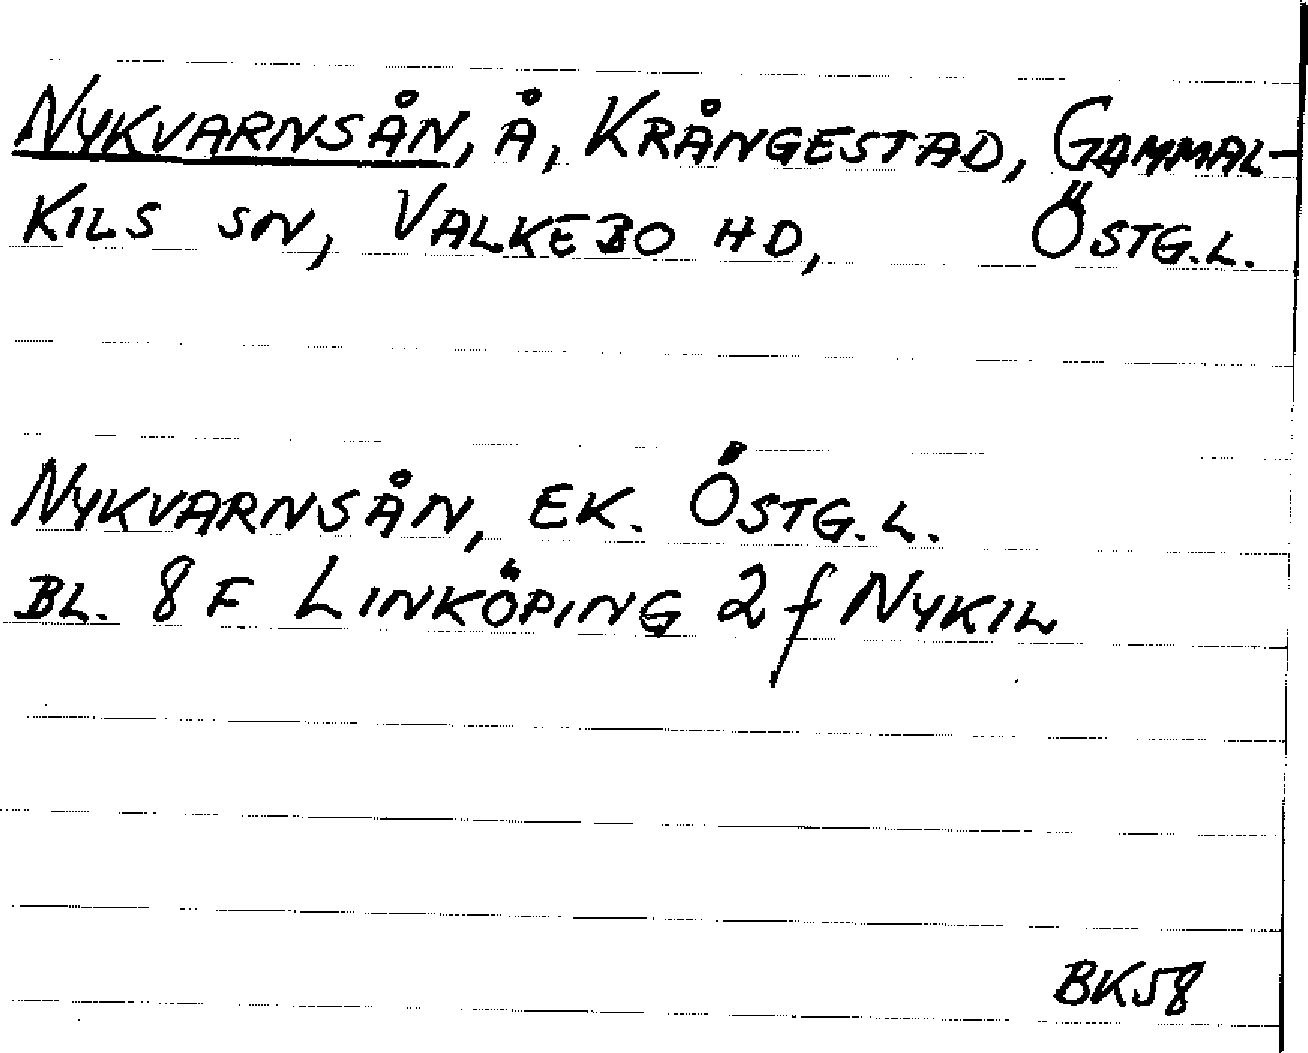 NYKVARNSÅN, Å, KRÅNGESTAD, GAMMAL-
KILS SN, VALKEBO HD, ÖSTG.L.
NYKVARNSÅN, EK. ÖSTG.L.
BL. 8 F LINKÖPING 2 f NYKIL
BK58